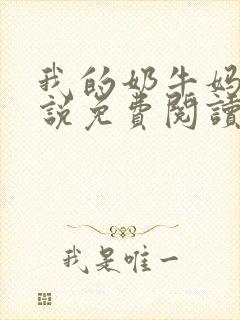 我的奶牛妈
说免費閱讀
我是唯一